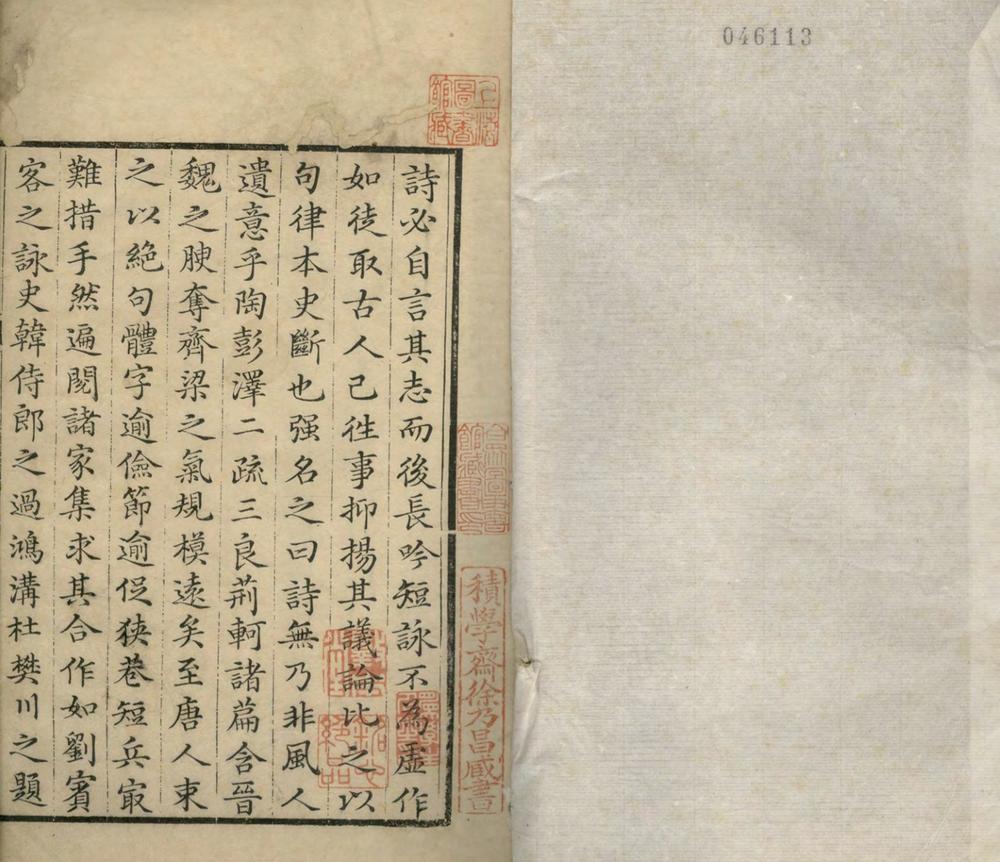 046113
上海圖書館藏
詩必自言其志而後長吟短詠不為虛作
如徒取古人已往事抑揚其議論比之以
句律本史斷也强名之曰詩無乃非風人
遺意乎陶彭澤二疏三良荊軻諸篇含晉
魏之腴奪齊梁之氣規模遠矣至唐人束
之以絕句體字逾儉節逾促狹巷短兵㝡
難措手然遍閱諸家集求其合作如劉賓
客之詠史韓侍郎之過鴻溝杜樊川之題
積學齋徐乃昌藏書